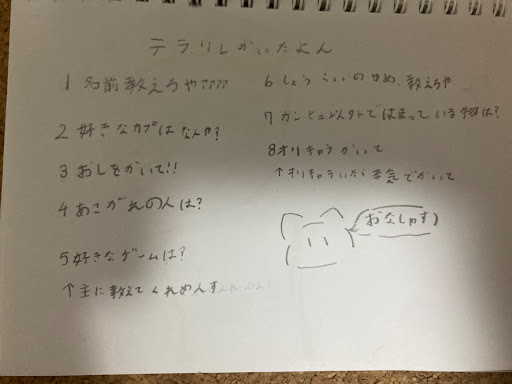 テラリレかいたよん
1 名前教えろや????
2 好きなカプはなんや?
3 おしをかいて!!
4 あこがれの人は?
5 好きなゲームは?
↑主に教えてくれめんす
6 しょうらいのゆめ、教えろや
7 カンヒュ以外ではまっている物は?
8 オリキャラかいて
↑オリキャラいたら本気でかいて
おなしゃす